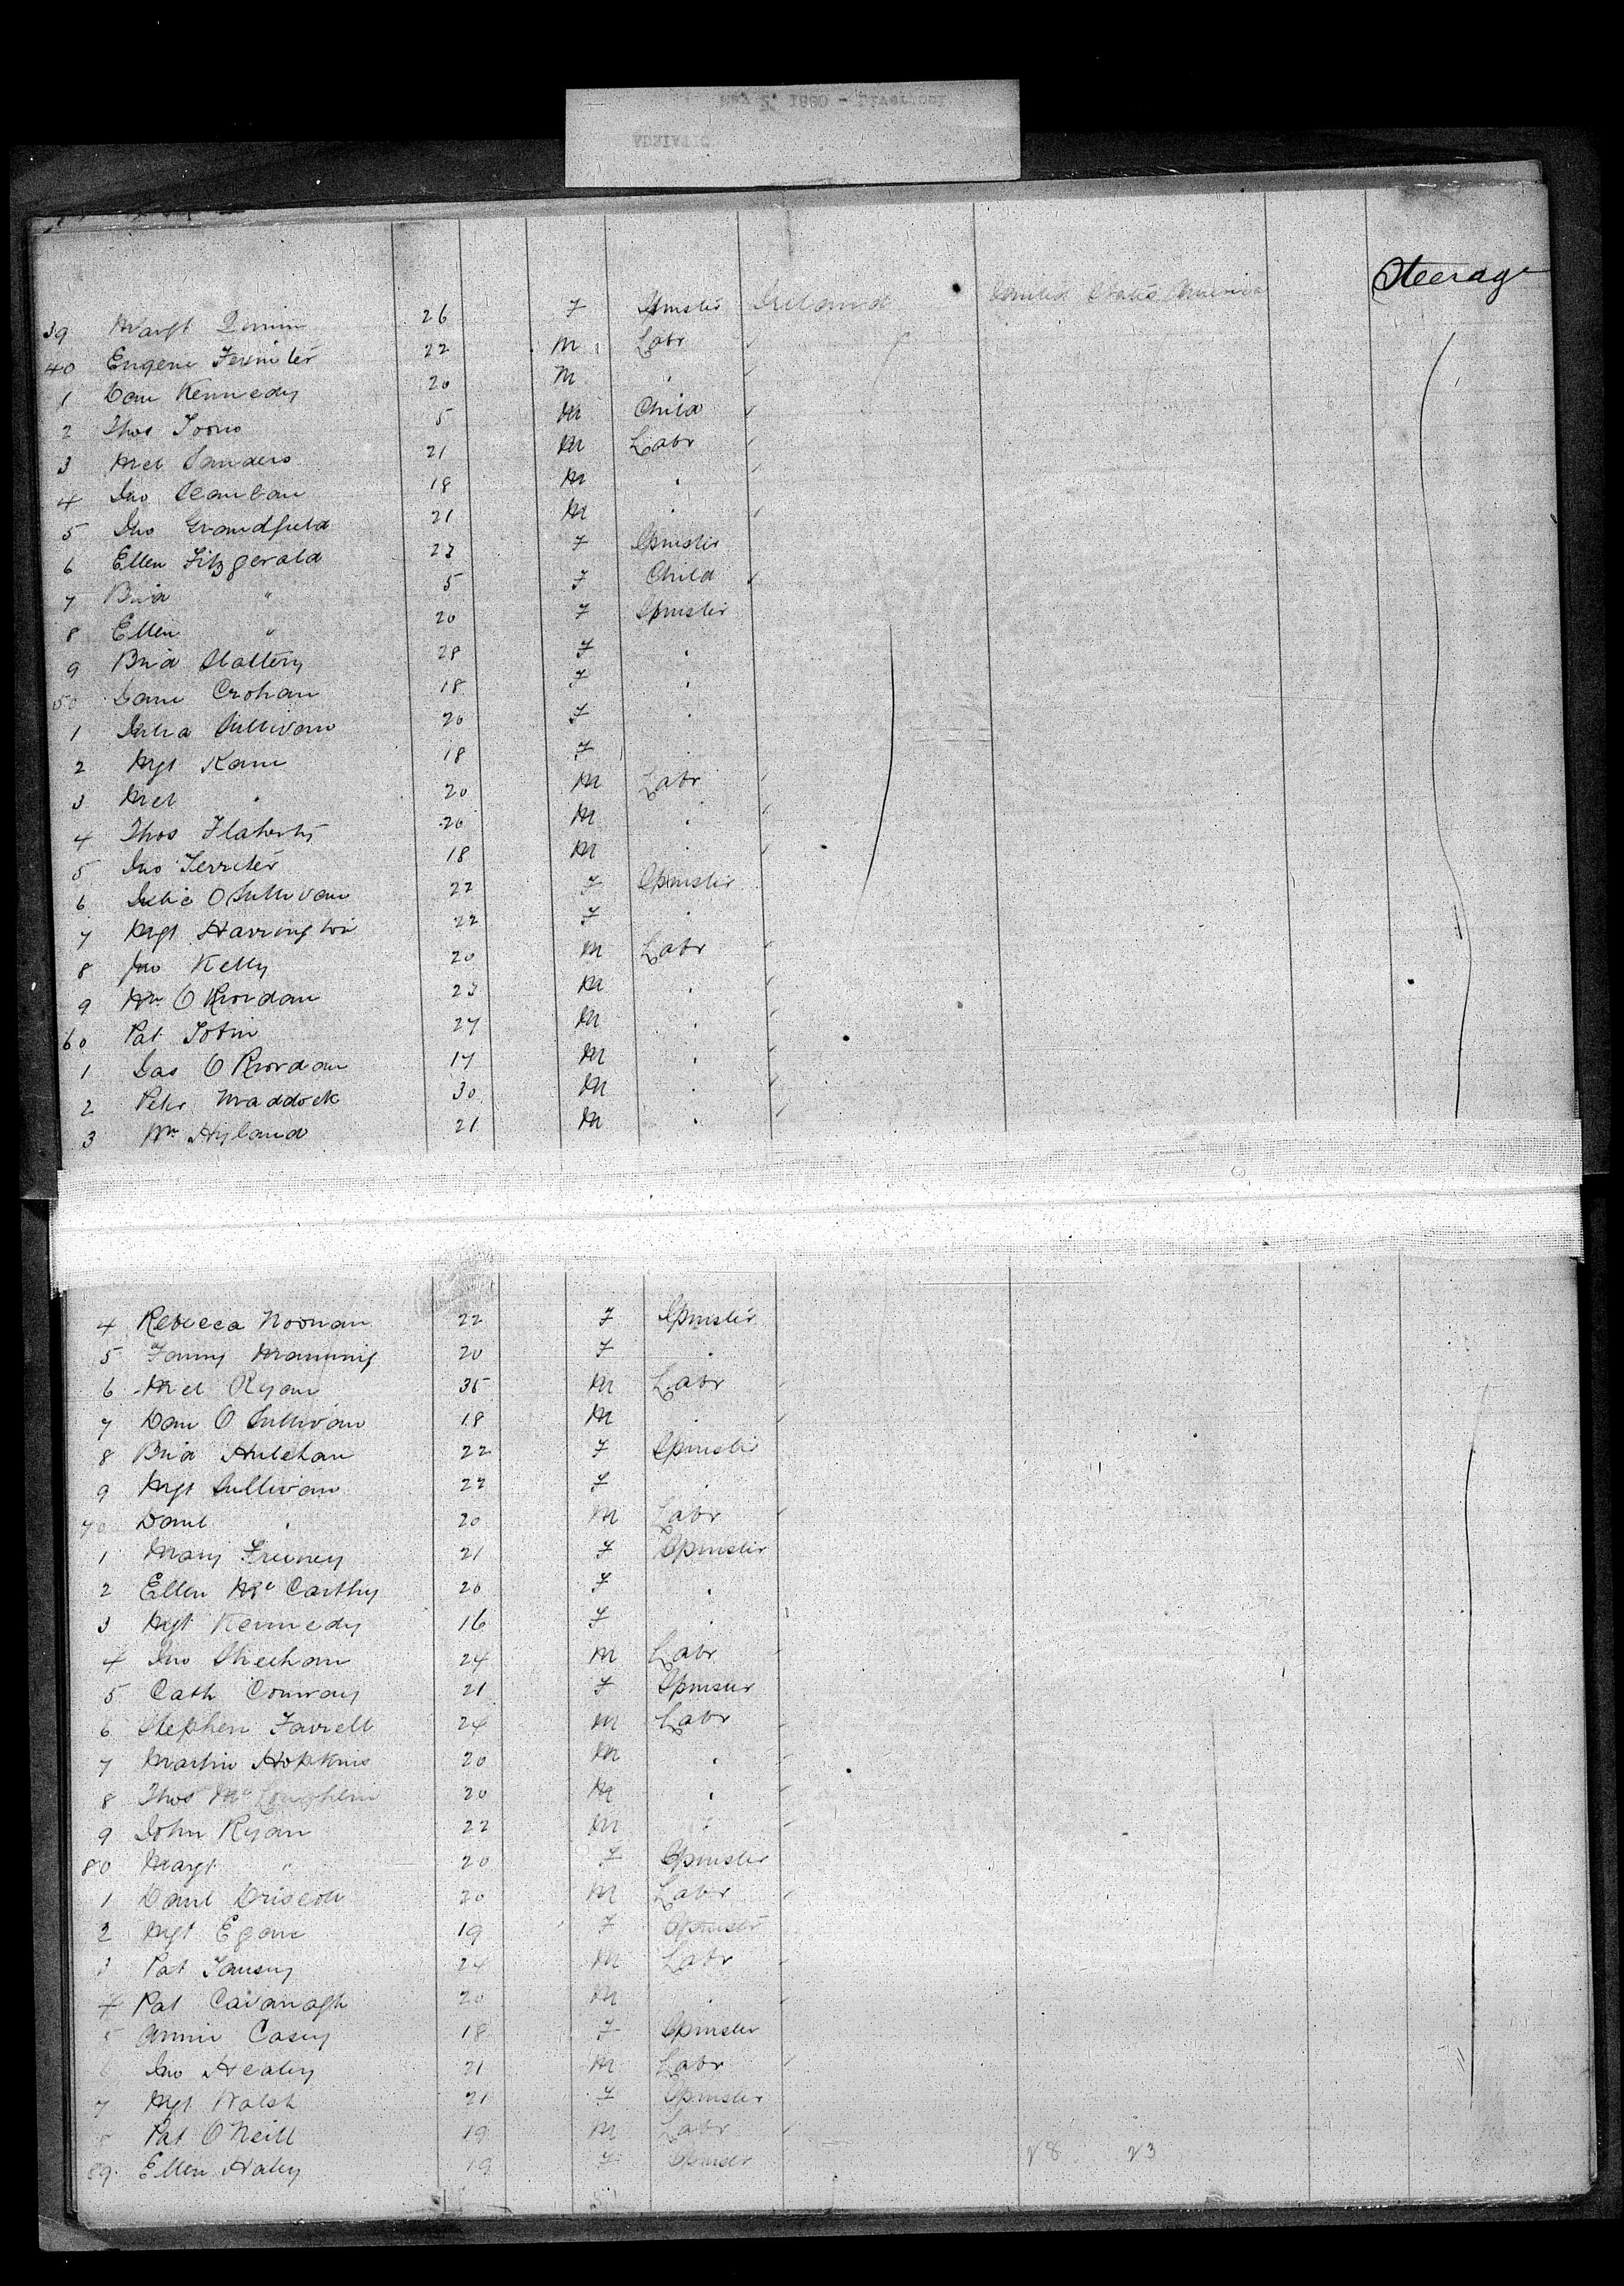 May 2, 1880 - Liverpool
ADRIATIC
Steerage
39 Margt 26 F Spinster Ireland United States America
40 Eugene 22 M Labr
1 Dan Kennedy 20 M "
2 Thos 5 M Child
3 Mcl Sanders 21 M Labr
4 Jno 18 M "
5 Jno Grandfield 21 M "
6 Ellen Fitzgerald 23 F Spinster
7 Brid " 5 F Child
8 Ellen " 20 F Spinster
9 Brid Slattery 28 F "
50 Crohan 18 F "
1 Julia Sullivan 20 F "
2 Mgt Kane 18 F "
3 Mcl " 20 M Labr
4 Thos Flaherty 20 M "
5 Jno Ferriter 18 M "
6 Julia O Sullivan 22 F Spinster
7 Mgt Harrington 22 F "
8 Jno Kelly 20 M Labr
9 Wm O Riordan 23 M "
60 Pat Tobin 27 M "
1 Jas O Riordan 17 M "
2 Peter Maddock 30 M "
3 Wm Hyland 21 M "
4 Rebecca Noonan 22 F Spinster
5 Fanny Manning 20 F "
6 Mcl Ryan 35 M Labr
7 Dan O Sullivan 18 M "
8 Brid Hulehan 22 F Spinster
9 Mgt Sullivan 22 F "
70 Danl " 20 M Labr
1 Mary Freeney 21 F Spinster
2 Ellen McCarthy 20 F "
3 Mgt Kennedy 16 F "
4 Jno Sheehan 24 M Labr
5 Cath Conway 21 F Spinster
6 Stephen Farrell 24 M Labr
7 Martin Hopkins 20 M "
8 Thos McLoughlin 20 M "
9 John Ryan 22 M "
80 Margt " 20 F Spinster
1 Danl Driscoll 20 M Labr
2 Mgt Egan 19 F Spinster
3 Pat Tansey 24 M Labr
4 Pat Cavanagh 20 M "
5 Annie Casey 18 F Spinster
6 Jno Healey 21 M Labr
7 Mgt Walsh 21 F Spinster
8 Pat O Neill 19 M Labr
89 Ellen Haley 19 F Spinster 28 23